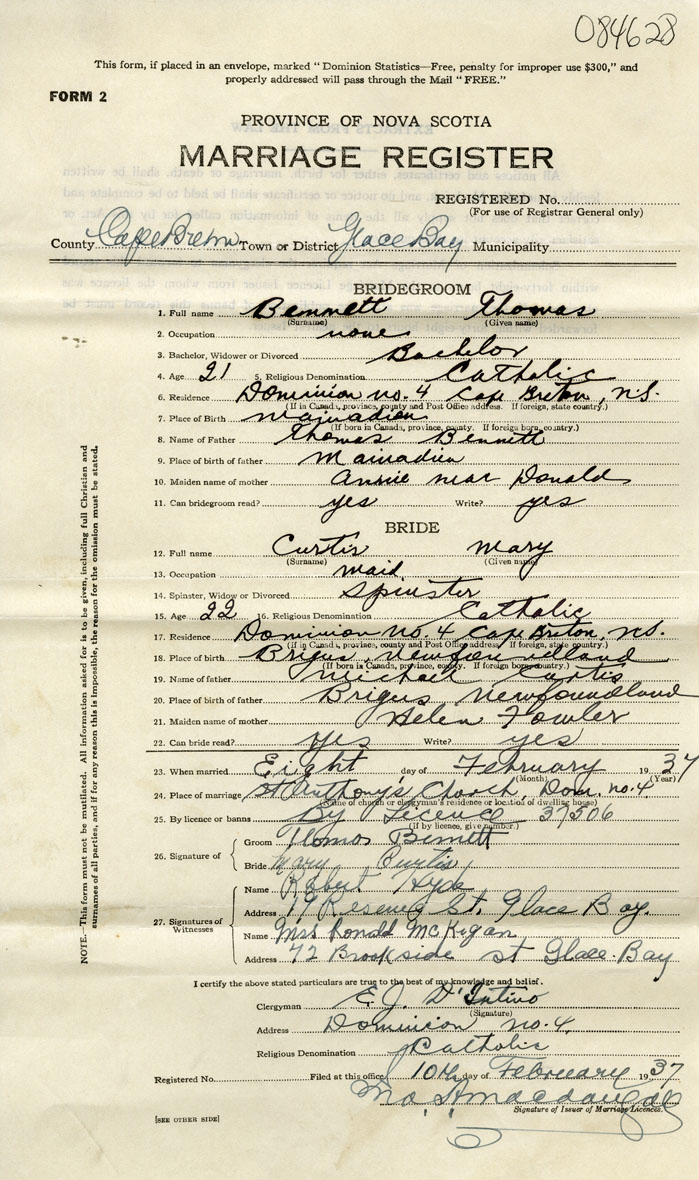 084628
This form, if placed in an envelope, marked “Dominion Statistics—Free, penalty for improper use $300,” and
properly addressed will pass through the Mail “FREE.”
FORM 2
PROVINCE OF NOVA SCOTIA
MARRIAGE REGISTER
REGISTERED No.
(For use of Registrar General only)
County Cape Breton Town or District Glace Bay Municipality
BRIDEGROOM
1. Full name Bennett Thomas
(Surname) (Given name)
2. Occupation none
3. Bachelor, Widower or Divorced Bachelor
4. Age 21 5. Religious Denomination Catholic
6. Residence Dominion no. 4 Cape Breton, n.S.
(If in Canada, province, county and Post Office address. If foreign, state country.)
7. Place of Birth mainadieu
(If born in Canada, province, county. If foreign born, country.)
8. Name of Father Thomas Bennett
9. Place of birth of father Mainadieu
10. Maiden name of mother Annie Donald
11. Can bridegroom read? yes Write? yes
BRIDE
12. Full name Curtis Mary
(Surname) (Given name)
13. Occupation maid
14. Spinster, Widow or Divorced Spinster
15. Age 22 16. Religious Denomination Catholic
17. Residence Dominion no. 4 Cape Breton, n.S.
(If in Canada, province, county and Post Office address. If foreign, state country.)
18. Place of birth Brigus, Newfoundland
(If born in Canada, province, county. If foreign born, country.)
19. Name of father Michael Curtis
20. Place of birth of father Brigus Newfoundland
21. Maiden name of mother Helen Fowler
22. Can bride read? yes Write? yes
23. When married Eight day of February 1937
(Month) (Year)
24. Place of marriage St Anthony's Church, Dom. no. 4
(Name of church or clergyman's residence or location of dwelling house)
25. By licence or banns By Licence 37506
(If by licence, give number.)
26. Signature of
Groom Thomas Bennett
Bride Mary Curtis
27. Signatures of Witnesses
Name Robert Hyde
Address 19 Reserve St. Glace Bay.
Name Mrs Ronald McKigan
Address 72 Brookside st Glace. Bay
I certify the above stated particulars are true to the best of my knowledge and belief.
Clergyman E. J. D'Intino
(Signature)
Address Dominion no. 4.
Religious Denomination Catholic
Registered No. Filed at this office 10th day of February 1937
Signature of Issuer of Marriage Licences.
[SEE OTHER SIDE]
NOTE.—This form must not be mutilated. All information asked for is to be given, including full Christian and
surnames of all parties, and if for any reason this is impossible, the reason for the omission must be stated.